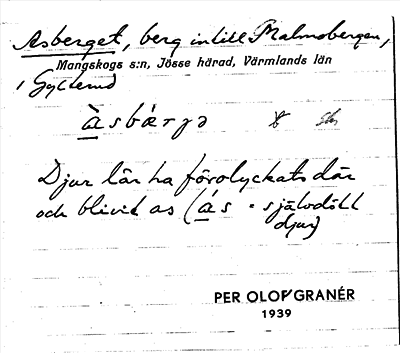 Asberget, berg intill Malmobergen,
Mangskogs s:n, Jösse härad, Värmlands län
i Gylterud
àsbærjə
Djur lär ha förolyckats där
och blivit as (ás = självdött
djur)
PER OLOF GRANÉR
1939